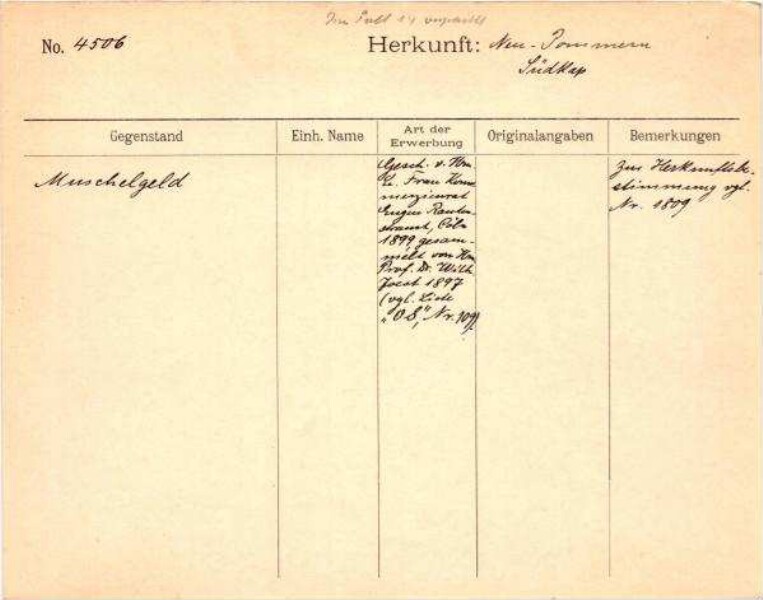 No. 4506
Herkunft: Neu-Pommern
Südkap
Gegenstand
Einh. Name
Art der
Erwerbung
Originalangaben
Bemerkungen
Muschelgeld
Gesch. v. Hrn
u. Frau Kom
merzienrat
Eugen Rauten-
strauch, Cöln
1899 gesam-
melt von Hrn
Prof. Dr. Wilh
Joest 1897
(vgl. Liste
„OS," Nr. 109)
Zur Herkunftsbe-
stimmung vgl.
Nr. 1809